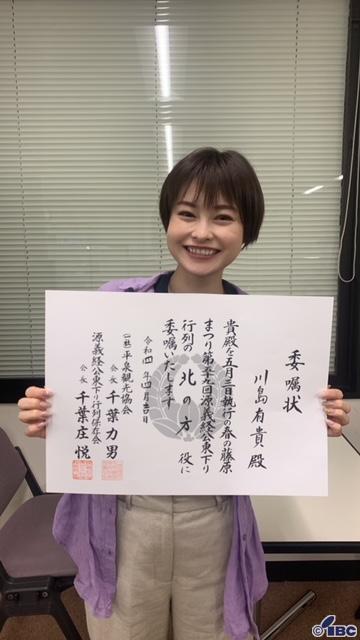 委嘱状
川島有貴 殿
貴殿を五月三日執行の春の藤原
まつり第 回源義経公東下り
行列の 北の方 役に
委嘱いたします
令和四年四月吉日
(一社)平泉観光協会
会長 千葉力男
源義経公東下り行列保存会
会長 千葉庄悦
©IBC